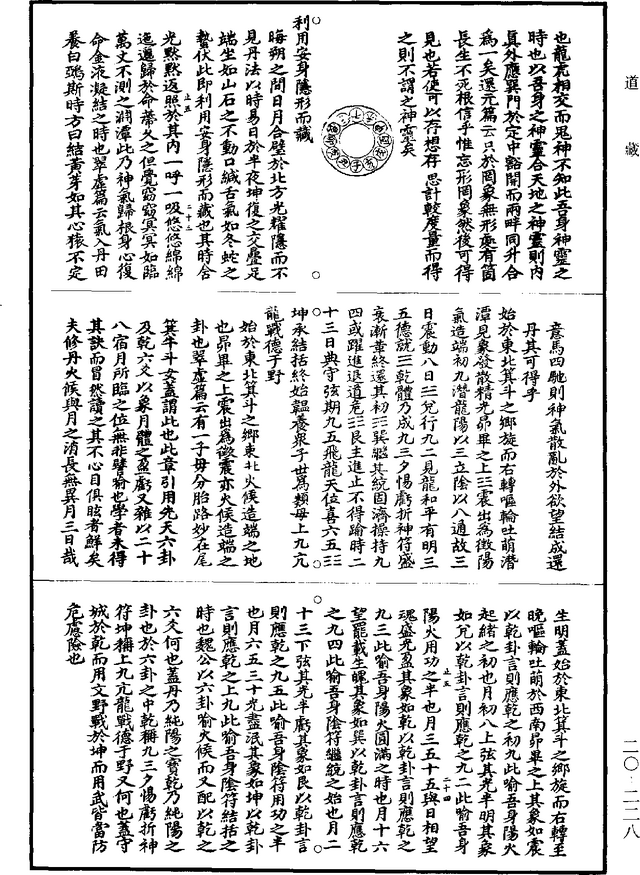 道藏
也龍虎相交而鬼神不知此吾身神靈之
時也以吾身之神靈合天地之神靈則内
真外應巽門於定中豁開而兩畔同升合
為一矣還元篇云只於罔象無形處有箇
長生不死根信乎惟忘形罔象然後可得
見也若使可以存想存思計較度量而得
之則不謂之神靈矣
利用安身隱形而藏
晦朔之間日月合璧於北方光耀隱而不
見丹法以時易日於半夜坤復之交疊足
端坐如山石之不動口緘舌氣如冬蛇之
蟄伏此即利用安身隱形而藏也其時合
光默默返照於其内一呼一吸悠悠綿綿
迤邐歸於命蔕久之但覺窈窈冥冥如臨
萬丈不測之淵潭此乃神氣歸根身心復
命金液凝結之時也翠虛篇云氣入丹田
養白鵶斯時方曰結黃芽如其心猿不定
意馬四馳則神氣散亂於外欲望結成還
丹其可得乎
始於東北箕斗之鄉旋而右轉嘔輪吐萌潛
潭見象發散精光昴畢之上☳震出為徵陽
氣造端初九潛龍陽以三立陰以八通故三
日震動八日☱兌行九二見龍和平有明三
五德就☰乾體乃成九三夕惕虧折神符盛
衰漸革終還其初☴巽繼其統固濟操持九
四或躍進退道危☶艮主進止不得踰時二
十三日典守弦期九五飛龍天位喜六五☷
坤承結括終始韞養衆子世爲類母上九亢
龍戰德于野
始於東北箕斗之鄉東北火候造端之地
也昴畢之上震出為徵震亦火候造端之
卦也翠虛篇云有一子母分胎路妙在尾
箕牛斗女蓋謂此也此章引用先天六卦
及乾六爻以象月體之盈虧又雜以二十
八宿月所臨之位無非譬喻也學者未得
其訣而冒然讀之其不心目俱眩者鮮矣
夫修丹火候與月之消長無異月三日哉
生明蓋始於東北箕斗之鄉旋而右轉至
晚嘔輪吐萌於西南昴畢之上其象如震
以乾卦言則應乾之初九此喻吾身陽火
起緒之初也月初八上弦其光半明其象
如兌以乾卦言則應乾之九二此喻吾身
陽火用功之半也月三五十五與日相望
魂盛光盈其象如乾以乾卦言則應乾之
九三此喻吾身陽火圓滿之時也月十六
望罷載生魄其象如巽以乾卦言則應乾
之九四此喻吾身陰符繼統之始也月二
十三下弦其光半虧其象如艮以乾卦言
則應乾之九五此喻吾身陰符用功之半
也月六五三十光盡泯其象如坤以乾卦
言則應乾之上九此喻吾身陰符結括之
時也魏公以六卦喻火候而又配以乾之
六爻何也蓋丹乃純陽之寳乾乃純陽之
卦也於六卦之中乾稱九三夕惕虧折神
符坤稱上九亢龍戰德于野又何也蓋守
城於乾而用文野戰於坤而用武皆當防
危慮險也
二〇·二二八